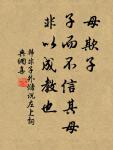 母欺子
子而不信其母
非以成教也
韩非子外储说左上词
典网集